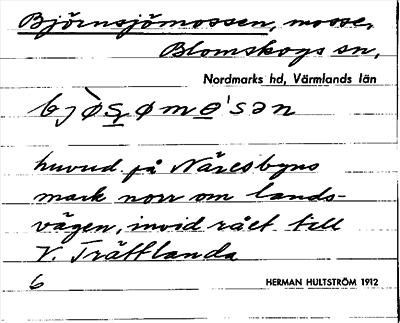 Björnsjömossen, mosse,
Blomskogs sn,
Nordmarks hd, Värmlands län
bjὸs̲øme̲'sən
huvud. på Näresbyns
mark norr om lands-
vägen, invid rået till
V. Trättlanda
6
HERMAN HULTSTRÖM 1912